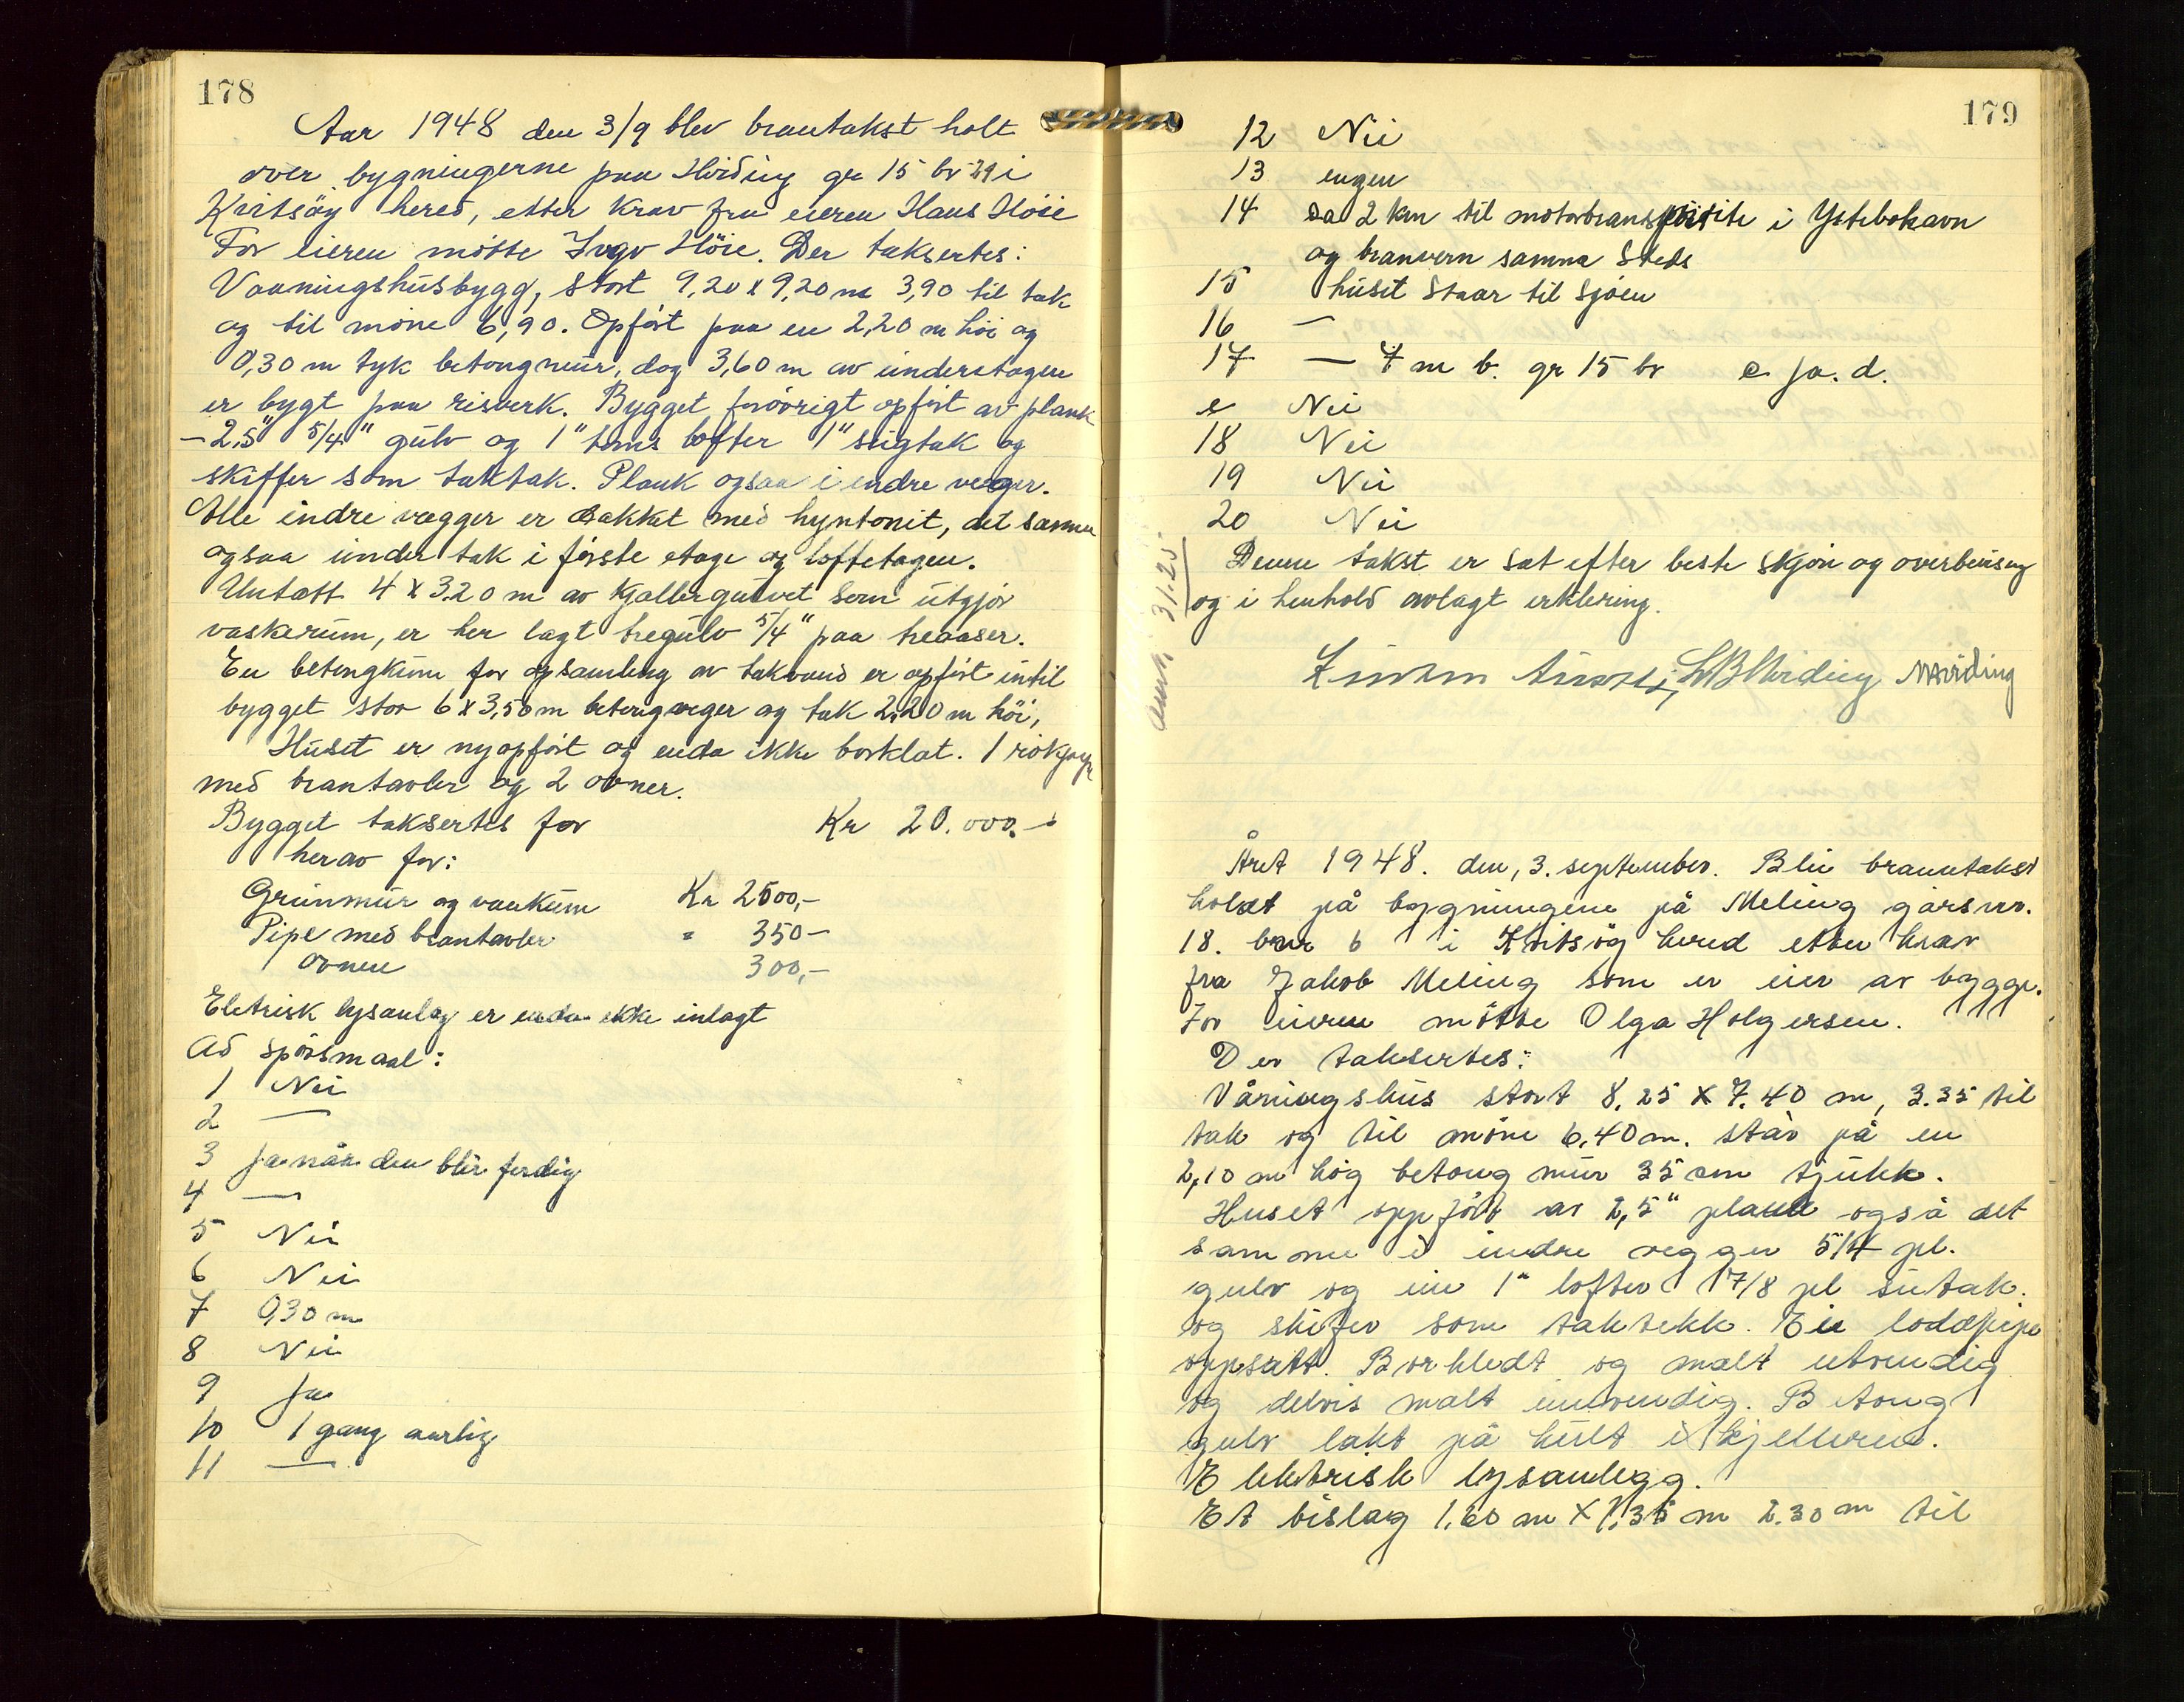 178
Aar 1948 den 3/9 blev brantakst holt
över bygningerne paa Hviding gr 15 br 29 i
Kvitsöy hered, etter krav fra eieren Hans Höie
For eieren mötte Ingv Höie. Der taksertes:
Vaaningshusbygg, stort 9,20 x 9,20 m 3,90 til tak
og til möne 6,90. Opfört paa en 2,20 m höi og
0,30 m tyk betongmur, dog 3,60 m av understagen
er bygt paa risverk. Bygget forövrigt opfört av plank
- 2,5" 5/4" gulv og 1" toms lofter 1" suigtak og
skiffer som taktak. Plank ogsaa i indre veger.
Alle indre vægger er dakket med hyntonit, det samme
ogsaa under tak i förste etage og loftetagen.
Untatt 4 x 3.20 m av kjallergulvet som utgjör
vaskerum, er her lagt tregulv 5/4" paa treaaser.
En betongkum for opsamling av takvand er opfört intil
bygget stor 6 x 3,50 m betongveger og tak 2,20 m höi,
Huset er nyopfört og enda ikke borklat. 1 rökpipe
med brantavler og 2 ovner.
Bygget taksertes for Kr 20.000.-
herav for:
Grunmur og vankum Kr 2500,-
Pipe med brantavler " 350-
ovnene 300,-
Eletrisk lysanlag er enda ikke inlagt
Ad spörsmaal:
1 Nei
2 —
3 Ja når den blir ferdig
4 —
5 Nei
6 Nei
7 0,30 m
8 Nei
9 Ja
10 1 gang aarlig
11 —
179
12 Nei
13 engen
14 ca 2 km til motorbranspröite i Ystebøhavn
og branvern samma Steds
15 huset staar til sjöen
16 —
17 — 7 m b. gr 15 br c ja. d.
e Nei
18 Nei
19 Nei
20 Nei
Denne takst er sat efter beste skjön og overbevisng
og i henhold avlagt erklering.
31.25
L B Hviding MHviding
Året 1948. den, 3. september. Blei branntakst
holdt på bygningene på Meling gårsnr.
18. bnr 6 i Kvitsöy hered etter krav
fra Jakob Meling som er eier av bygge.
For eieren mötte Olga Holgersen.
Der taksertes:
Våningshus stort 8.25 x 7.40 m, 3.35 til
tak og til möne 6.40 m. står på en
2,10 m hög betong mur 35 cm tjukk.
Huset oppfört av 2,5" plank også det
samme i indre vegger 5/4 pl.
gulv og ein 1" lofter 7/8 pl sutak.
og skifer som taktekk. Ein loddpipe
oppsatt. Borkledt og malt utvendig
og delvis malt innvendig. Betong
gulv lakt på kult i kjelleren.
Elektrisk lysanlegg.
Et bislag 1.60 m x 1.35 m 2.30 m til